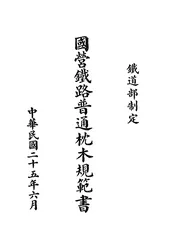 鐵道部制定
國營鐵路普通枕木規範書
中華民國二十五年六月